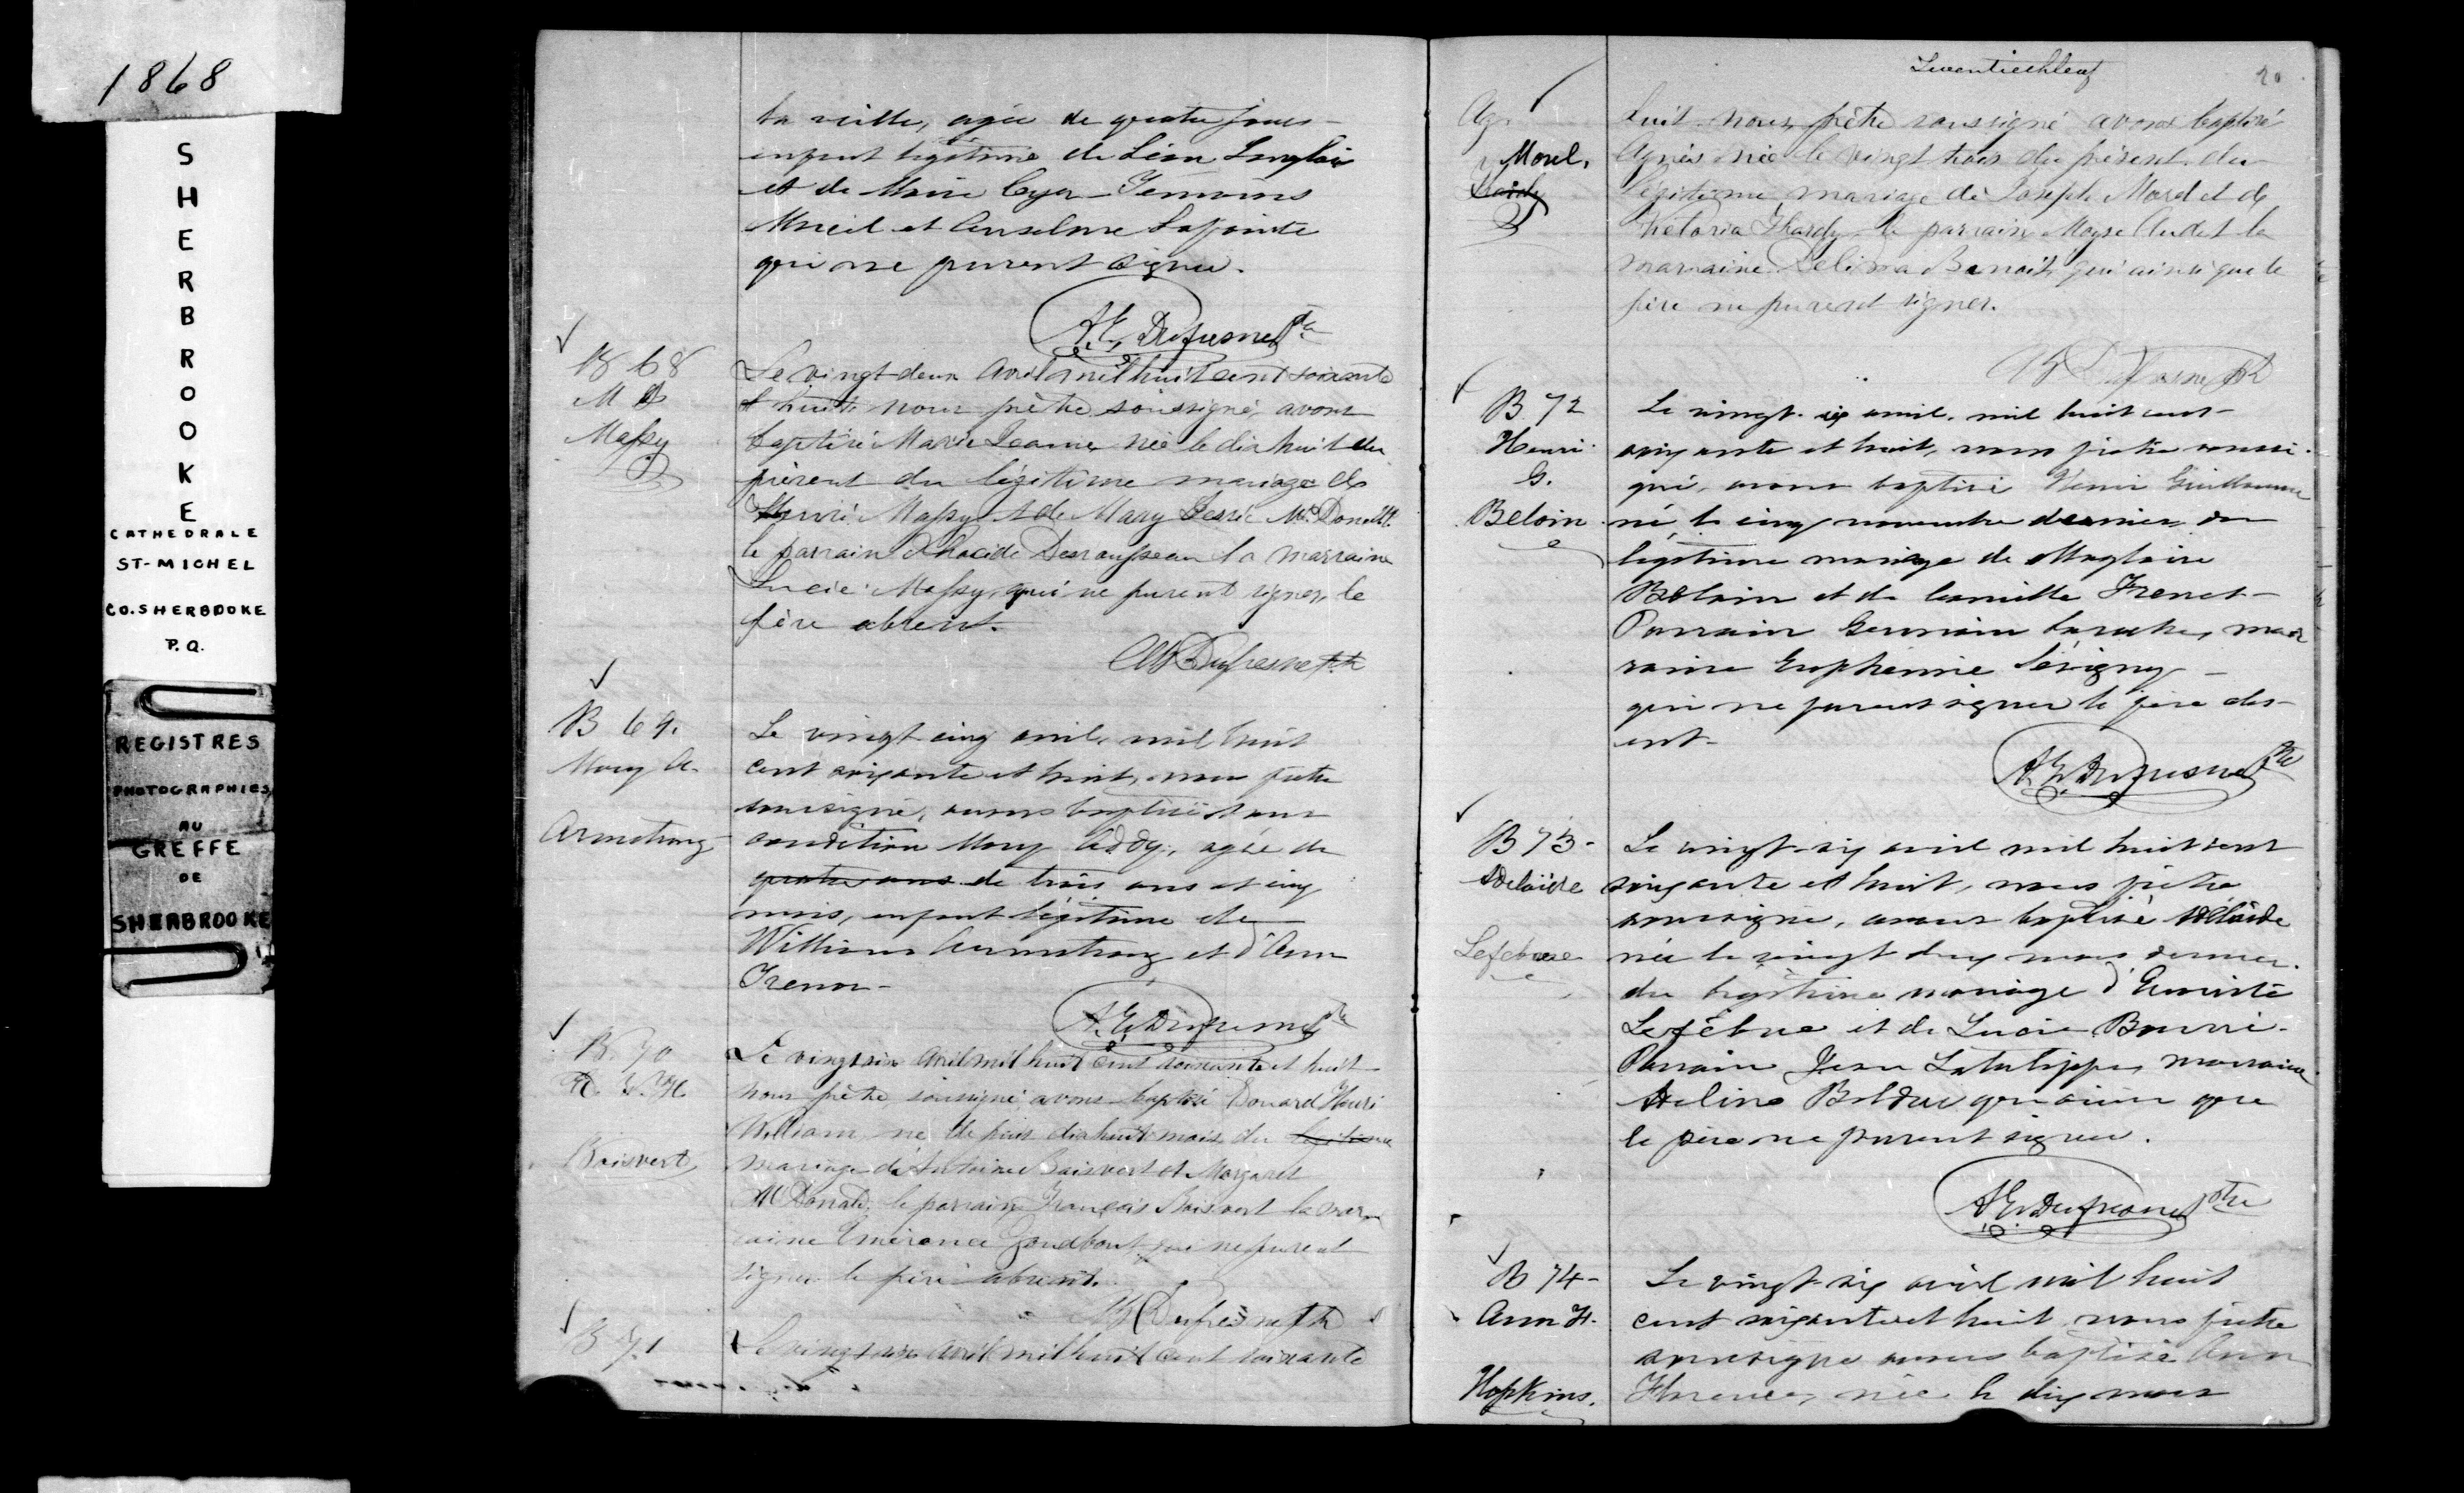 1868
SHERBROOKE
CATHEDRALE
ST-MICHEL
CO. SHERBROOKE
P.Q.
REGISTRES
PHOTOGRAPHIES
AU
GREFFE
DE
SHERBROOKE
la veille, agée de quatre jours
enfant légitime de Léon Langlois
et de Marie Cyr - Temoins
et Anselme Lapointe
qui ne purent signer.
A. E. Dufresne Ptre
B 68
M
Massy
Le vingt-deux Avril mil huit cent soixante
et huit nous prêtre soussigné avons
baptisé Marie née le dix huit du
présent du légitime mariage de
Henri Massy et de Mary McDonell
le parrain Placide Desrousseau la marraine
Lucie Massy, qui ne purent signer, le
père absent.
AE Dufresne Ptr
B 69.
Mary A.
Armstrong
Le vingt cinq avril, mil huit
cent soixante et huit, nous prêtre
soussigné, avons baptisé sous
condition Mary Addy, agée de
quatre ans de trois ans et cinq
mois, enfant légitime de
William Armstrong et d'Ann
Trenor -
A. E. Dufresne Ptre
B. 70
E. H. W.
Boisvert
Le vingt six Avril mil huit cent soixante et huit
nous prêtre soussigné avons baptisé Edouard Henri
William, né depuis dix huit mois du légitime
mariage d'Antoine Boisvert et Margaret
McDonald, le parrain François Boisvert la mar
raine Emérence Goudbout qui ne purent
signer le père absent.
AE Dufresne Ptr
B 71
Le vingt six avril mil huit cent soixante
20
Ag.
Morel.
Hardy
huit nous, prêtre soussigné avons baptisé
Agnès née le vingt trois du présent du
légitime mariage de Joseph Morel et de
Victoria Hardy le parrain Moyse Audet la
marraine Delima Benoit, qui ainsi que le
père ne purent signer.
AE Dufresne Ptr
B 72
Henri
G.
Beloin
Le vingt-six avril, mil huit cent
soixante et huit, nous prêtre soussi-
gné, avons baptisé Henri Guillaume
né le cinq novembre dernier du
légitime mariage de Magloire
Beloin et de Camille Frenet -
Parrain Germain mar
raine Euphémie Sévigny -
qui ne purent signer le père abs-
ent -
A. E. Dufresne Ptre
B 73 -
Adelaïde
Lefebvre
Le vingt-six avril mil huit cent
soixante et huit, nous prêtre
soussigné, avons baptisé Adélaïde
née le vingt deux mars dernier
du légitime mariage d'
Lefébvre et de Lucie
Parrain Jean Latulippe, marraine
Adeline Bolduc qui ainsi que
le père ne purent signer.
A E Dufresne Ptre
B 74 -
Ann F.
Hopkins.
Le vingt-six avril mil huit
cent soixante et huit nous prêtre
soussigné avons baptisé Ann
Florence, née le dix mars